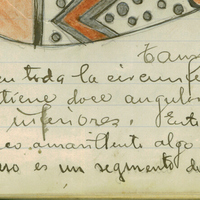 Tama
en toda la circunfe
tiene doce angulos
inferiores. Ent
co amarillento algo
uso es un segmento de